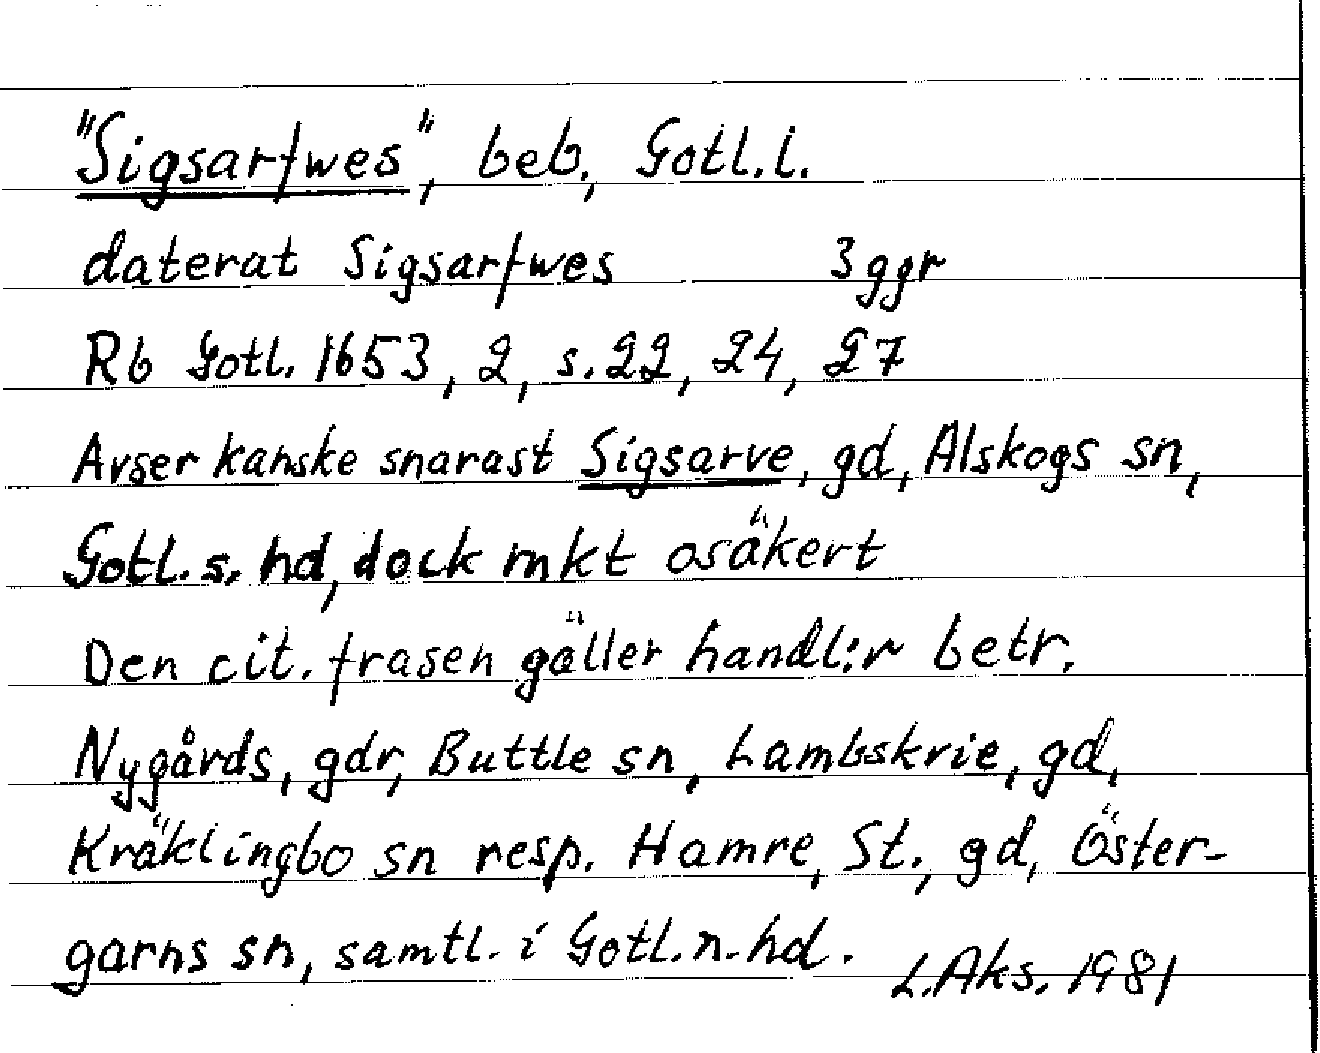 "Sigsarfwes", beb, Gotl.l.
daterat Sigsarfwes 3 ggr
Rb Gotl. 1653, 2, s. 22, 24, 27
Avser kanske snarast Sigsarve, gd, Alskogs sn,
Gotl. s. hd, dock mkt osäkert
Den cit. frasen gäller handl:r betr.
Nygårds, gdr, Buttle sn, Lambskrie, gd,
Kräklingbo sn resp. Hamre, St., gd, Öster-
garns sn, samtl. i Gotl. n. hd.
L. Aks. 1981